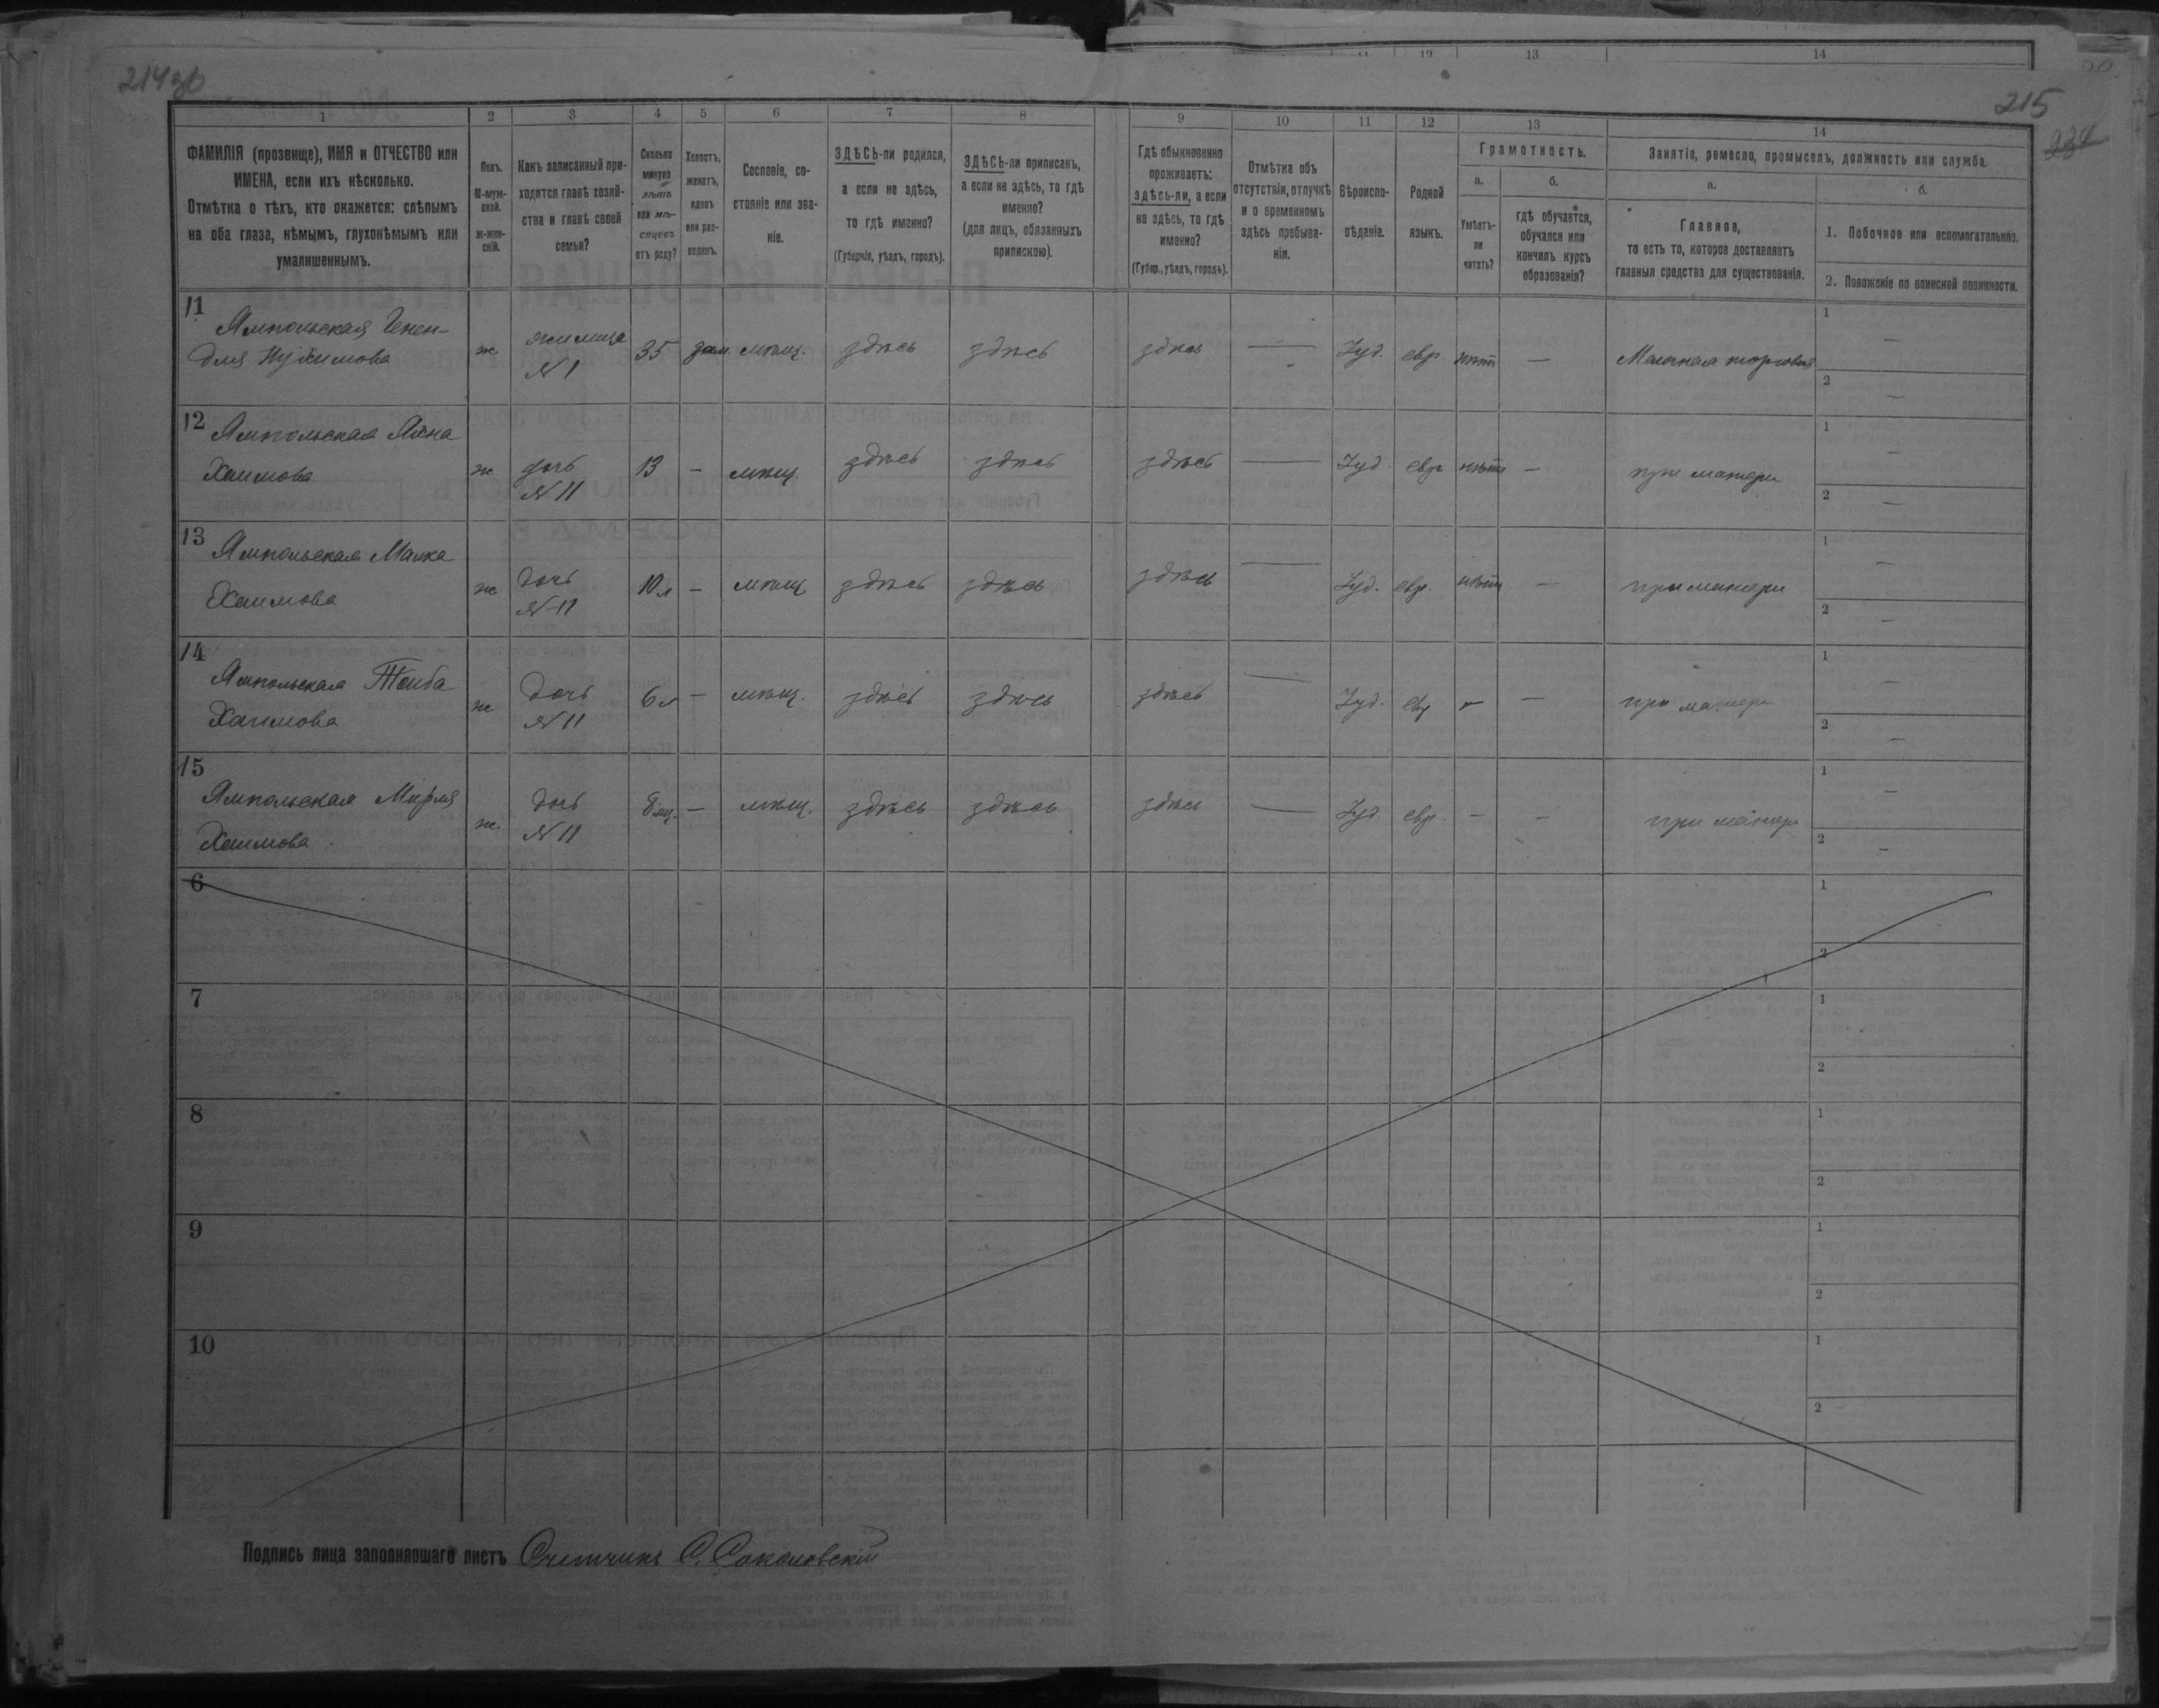 214об
215
234
11 12 13 14
1 2 3 4 5 6 7 8 9 10 11 12 13 14
ФАМИЛІЯ (прозвище), ИМЯ и ОТЧЕСТВО или
ИМЕНА, если ихъ нѣсколько.
Отмѣтка о тѣхъ, кто окажется: слѣпымъ
на оба глаза, нѣмымъ, глухонѣмымъ или
умалишеннымъ.
Полъ.
М-муж-
ской.
ж-жен-
скій.
Какъ записанный при-
ходится главѣ хозяй-
ства и главѣ своей
семьи?
Сколько
минуло
лѣтъ
или мѣ-
сяцевъ
отъ роду?
Холостъ,
женатъ,
вдовъ
или раз-
веденъ.
Сословіе, со-
стояніе или зва-
ніе.
ЗДѢСЬ-ли родился,
а если не здѣсь,
то гдѣ именно?
(Губернія, уѣздъ, городъ).
ЗДѢСЬ-ли приписанъ,
а если не здѣсь, то гдѣ
именно?
(для лицъ, обязанныхъ
припискою).
Гдѣ обыкновенно
проживаетъ:
здѣсь-ли, а если
не здѣсь, то гдѣ
именно?
(Губер., уѣздъ, городъ).
Отмѣтка объ
отсутствіи, отлучкѣ
и о временномъ
здѣсь пребыва-
ніи.
Вѣроиспо-
вѣданіе.
Родной
языкъ.
Грамотность.
а.
Умѣетъ-
ли
читать?
б.
гдѣ обучается,
обучался или
кончилъ курсъ
образованія?
Занятіе, ремесло, промыселъ, должность или служба.
а.
Главное,
то есть то, которое доставляетъ
главныя средства для существованія.
б.
1. Побочное или вспомогательное.
2. Положеніе по воинской повинности.
11
Ямпольская Генен-
для Нухимова
ж жилица
№ 1
35 зам. мѣщ. здѣсь здѣсь здѣсь — Іуд. евр. нѣтъ — Мелочная торговля
1 —
2 —
12
Ямпольская
Хаимова
ж дочь
№ 11
13 — мѣщ. здѣсь здѣсь здѣсь — Іуд. евр. нѣтъ — при матери
1 —
2 —
13
Ямпольская Малка
Хаимова
ж дочь
№ 11
10 л — мѣщ здѣсь здѣсь здѣсь — Іуд. евр. нѣтъ — при матери
1 —
2 —
14
Ямпольская Тойба
Хаимова
ж дочь
№ 11
6 л — мѣщ. здѣсь здѣсь здѣсь — Іуд. евр — — при матери
1 —
2 —
15
Ямпольская Мирля
Хаимова
ж. дочь
№ 11
8 мѣц. — мѣщ. здѣсь здѣсь здѣсь — Іуд евр. — — при матери
1 —
2 —
6
1
2
7
1
2
8
1
2
9
1
2
10
1
2
Подпись лица заполнявшаго листъ Счетчикъ С. Соколовскій